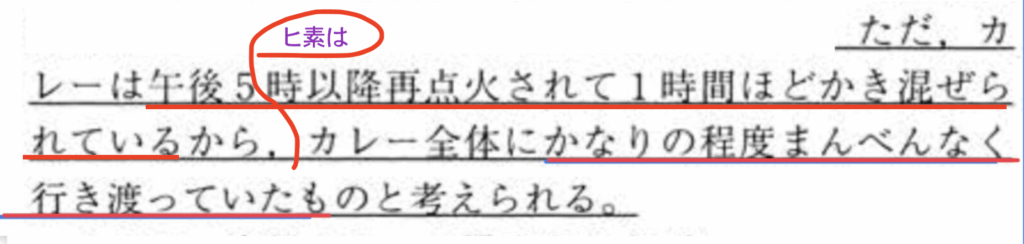 ヒ素は
ただ，カ
レーは午後5時以降再点火されて1時間ほどかき混ぜら
れているから，カレー全体にかなりの程度まんべんなく
行き渡っていたものと考えられる。